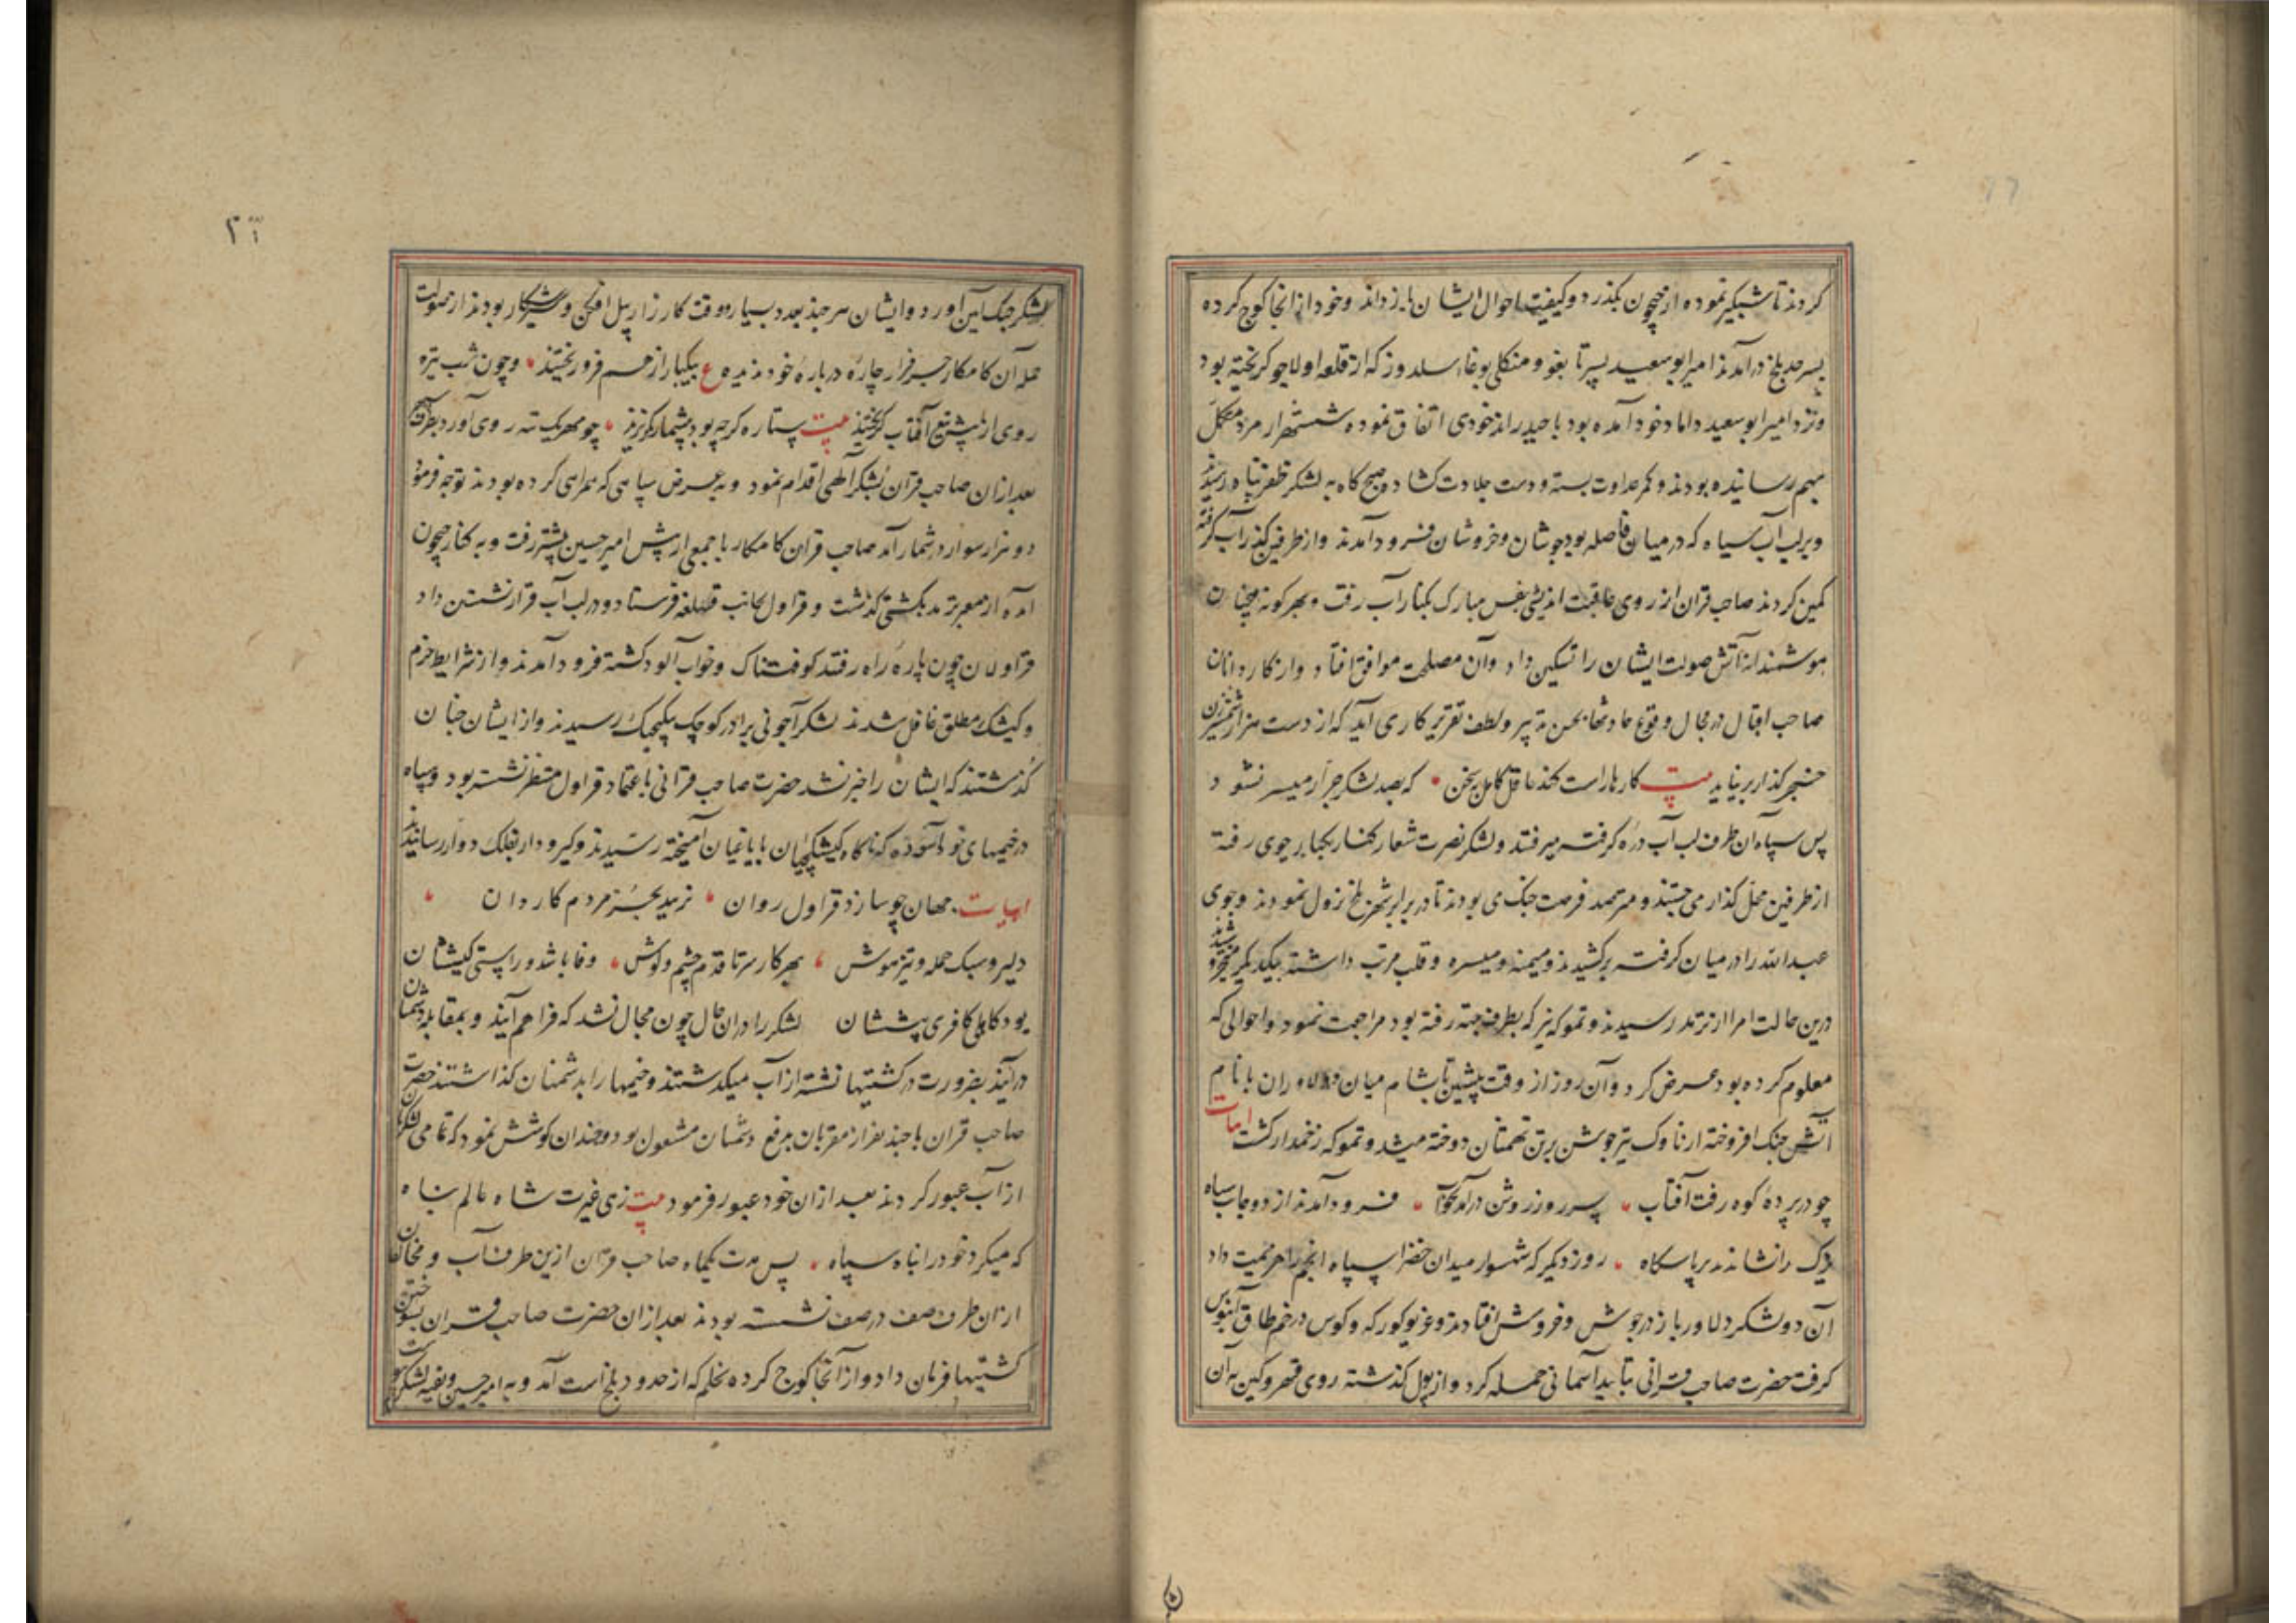 کردند تا شبگیر نموده از جیحون بگذرد و کیفیت احوال ایشان باز داند و خود از انجا کوچ کرده
بسرحد بلخ درآمدند امیر ابوسعید پسر تابغو و منکلی بوغا سلدوز که از قلعه اولاجو کریخته بود
ونزد امیر ابوسعید داماد خود آمده بود با حیدر اندخودی اتفاق نموده شش هزار مرد مکمل
بهم رسانیده بودند و کمر عداوت بسته و دست جلادت کشاد و صبح کاه به لشکر ظفر پناه رسیدند
وبرلب آب سیاه که در میان فاصله بود جوشان و خروشان فرود آمدند و از طرفین کذر آب کرفته
کمین کردند صاحب قران از روی عاقبت اندیشی بنفس مبارک بکنار آب رفت و بهر کونه سخنان
هوشمندانه آتش صولت ایشان را تسکین داد و آن مصلحت موافق افتاد و از کاردانان
صاحب اقبال در مجال وقوع حادثها بحسن تدبیر و لطف تقریر کاری آید که از دست هزار شمشیرزن
خنجر کذار برنیاید بیت کارها راست کند عاقل کامل بسخن که بصد لشکر جرار میسر نشود
پس سپاه ان طرف لب آب دره کرفته میرفتند و لشکر نصرت شعار کنار یکجا بر جوی رفته
از طرفین محل کذار می جستند و مترصد فرصت جنک می بودند تا در برابر شهر بلخ نزول نمودند و جوی
عبدالله را در میان کرفته برکشیدند و میمنه و میسره و قلب مرتب داشته بیکدیکر متوجه شدند
درین حالت امرا از ترمد رسیدند و تموکه نیز که بطرف جته رفته بود مراجعت نمود و احوالی که
معلوم کرده بود عرض کرد و آن روز از وقت پیشین تا شام میان دلاوران با نام
آتش جنک افروخته از ناوک تیر جوشن برتن تهمتنان دوخته میشد و تموکه زخمدار کشت ابیات
چو در پرده کوه رفت آفتاب سر روز روشن درآمد بخواب فرود آمدند از دو جانب سپاه
یزک را نشاندند بر پاسکاه روز دیکر که شهسوار میدان خضرا سپاه انجم را هزیمت داد
آن دو لشکر دلاور باز در جوش و خروش افتادند و غریو کورکه و کوس در خم طاق آبنوس
کرفت حضرت صاحب قرانی بتایید آسمانی حمله کرد و از پول کذشته روی قهر و کین به آن
لشکر جنک آیین آورد و ایشان هر چند بعدد بسیار و وقت کارزار پیل افکن و شیر شکار بودند از صولت
حمله آن کامکار جز فرار چاره درباره خود ندیده ع بیکبار از هم فرو ریختند و چون شب تیره
روی از پیش تیغ آفتاب کریختند بیت ستاره کرچه بود بیشمار بکریزد چو مهر یک تنه روی آورد بطرف
بعد ازان صاحب قران بشکر آلهی اقدام نمود و به عرض سپاهی که همراهی کرده بودند توجه فرمود
دو هزار سوار در شمار آمد صاحب قران کامکار با جمعی از پیش امیر حسین پیشتر رفت و به کنار جیحون
آمده از معبر ترمد بکشتی کذشت و قراول بجانب قهلغه فرستاد و در لب آب قرار نشستن داد
قراولان چون پاره راه رفتند کوفتناک و خواب آلود کشته فرود آمدند و از شرایط حزم
و کیشک مطلق غافل شدند لشکر آجونی برادر کوچک بیکیجک رسیدند و از ایشان چنان
کذشتند که ایشان را خبر نشد حضرت صاحب قرانی باعتماد قراول منتظر نشسته بود و سپاه
در خیمهای خود آسوده که ناکاه کیشکچیان با یاغیان آمیخته رسیدند و کیر و دار بفلک دوار رسانیدند
ابیات مهان چو سازد قراول روان نزیبد بجز مردم کاردان
دلیر و سبک حمله و تیزهوش بهر کار سر تا قدم چشم و کوش وفا باشد و راستی کیششان
بود کاهلی کافری پیششان لشکر را دران حال چون مجال نشد که فراهم آیند و بمقابله دشمنان
درآیند بضرورت در کشتیها نشسته از آب میکدشتند و خیمها را به دشمنان کذاشتند حضرت
صاحب قران با چند نفر از مقربان بدفع دشمنان مشغول بود و چندان کوشش نمود که تمامی لشکریان
از آب عبور کردند بعد ازان خود عبور فرمود بیت زی غیرت شاه عالم پناه
که میکرد خود را پناه سپاه پس مدت یکماه صاحب قران ازین طرف آب و مخالفان
ازان طرف صف در صف نشسته بودند بعد ازان حضرت صاحب قران بسوختن
کشتیها فرمان داد و از آنجا کوچ کرده بخلم که از حدود بلخ است آمد و به امیر حسین و بقیه لشکر